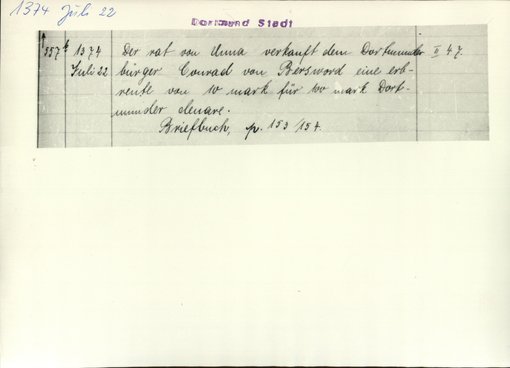 1374 Juli 22
Dortmund Stadt
357 b 1374 Der rat von Unna verkauft dem Dortmunder II 47
Juli 22 bürger Conrad von Bersword eine erb-
rente von 10 mark für 100 mark Dort-
munder denare.
Briefbuch, p. 153/154.